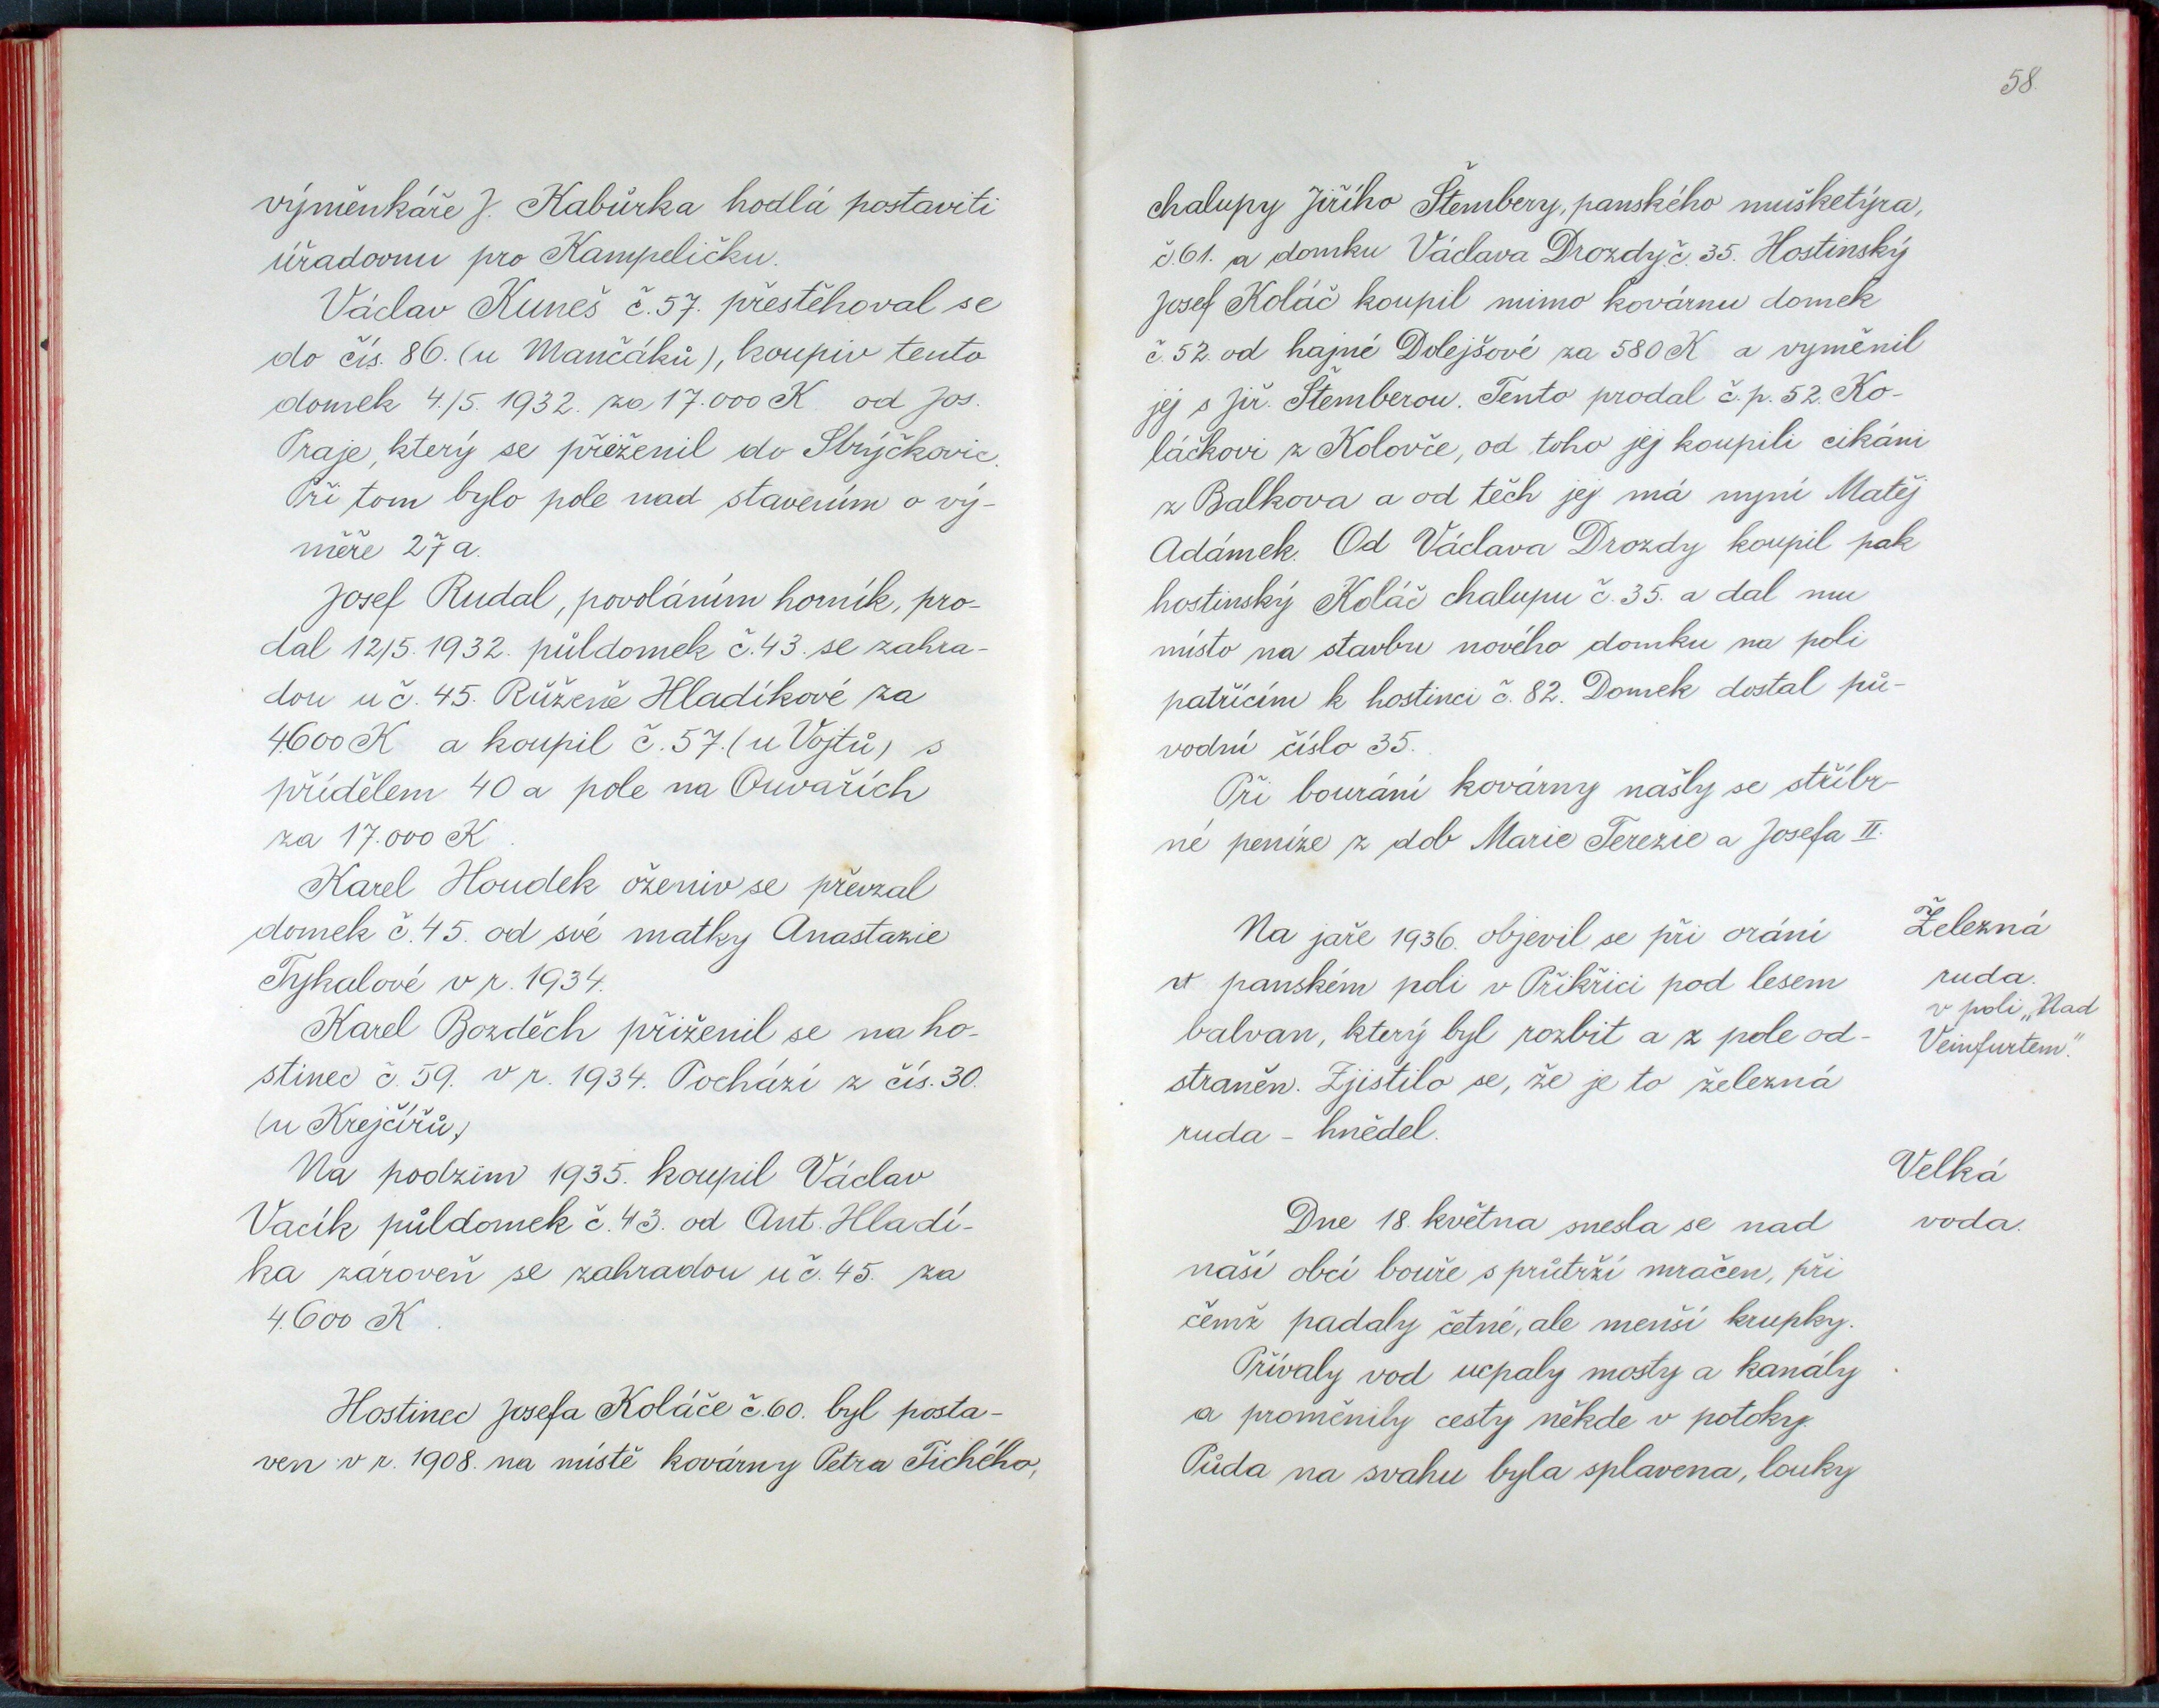 výměnkáře J. Kabůrka hodlá postaviti
úřadovnu pro Kampeličku.
Václav Kuneš č. 57. přestěhoval se
do čís. 86. (u Mančáků), koupiv tento
domek 4./5. 1932. za 17.000 K od Jos.
Praje, který se přiženil do Strýčkovic.
Při tom bylo pole nad stavením o vý-
měře 27 a.
Josef Rudal, povoláním horník, pro-
dal 12/5. 1932. půldomek č. 43. se zahra-
dou u č. 45. Růženě Hladíkové za
4600 K a koupil č. 57. (u Vojtů) s
přídělem 40 a pole na Ouvařích
za 17.000 K.
Karel Houdek oženiv se převzal
domek č. 45. od své matky Anastazie
Tykalové v r. 1934.
Karel Bozděch přiženil se na ho-
stinec č. 59. v r. 1934. Pochází z čís. 30.
(u Krejčířů)
Na podzim 1935. koupil Václav
Vacík půldomek č. 43. od Ant. Hladí-
ka zároveň se zahradou u č. 45. za
4.600 K.
Hostinec Josefa Koláče č. 60. byl posta-
ven v r. 1908. na místě kovárny Petra Tichého,
58.
chalupy Jiřího Štembery, panského mušketýra,
č. 61. a domku Václava Drozdy č. 35. Hostinský
Josef Koláč koupil mimo kovárnu domek
č. 52. od hajné Dolejšové za 580 K a vyměnil
jej s Jiř. Štemberou. Tento prodal č. p. 52. Ko-
láčkovi z Kolovče, od toho jej koupili cikáni
z Balkova a od těch jej má nyní Matěj
Adámek. Od Václava Drozdy koupil pak
hostinský Koláč chalupu č. 35. a dal mu
místo na stavbu nového domku na poli
patřícím k hostinci č. 82. Domek dostal pů-
vodní číslo 35.
Při bourání kovárny našly se stříbr-
né peníze z dob Marie Terezie a Josefa II.
Na jaře 1936. objevil se při orání
v panském poli v Přikřici pod lesem
balvan, který byl rozbit a z pole od-
straněn. Zjistilo se, že je to železná
ruda - hnědel.
Železná
ruda.
v poli „Nad
Veinfurtem."
Velká
voda.
Dne 18. května snesla se nad
naší obcí bouře s průtrží mračen, při
čemž padaly četné, ale menší krupky.
Přívaly vod ucpaly mosty a kanály
a proměnily cesty někde v potoky.
Půda na svahu byla splavena, louky